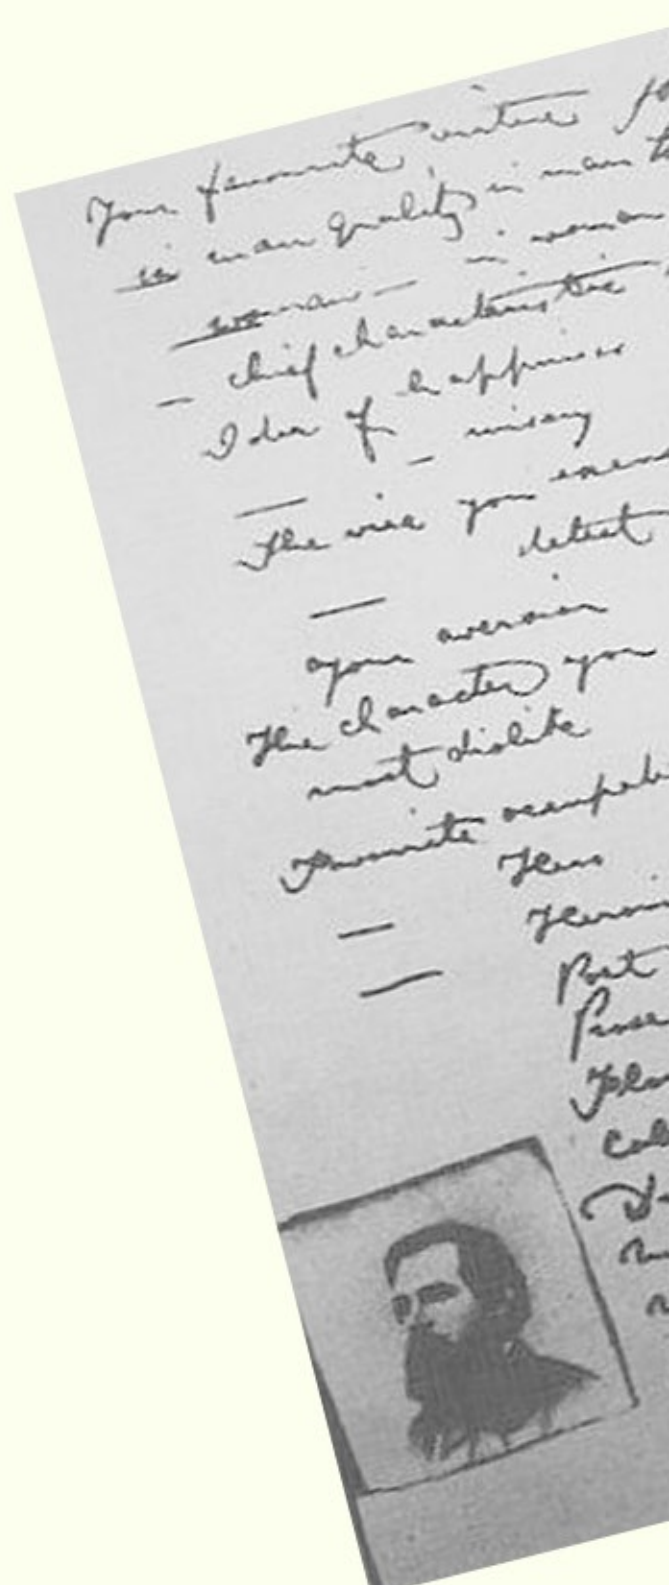 Your favourite virtue
in man quality in man
woman — in woman
— chief characteristic
Idea of happiness
— — misery
The vice you
— detest
your aversion
The character you
most dislike
Favourite
— Hero
—
Poet
Prose